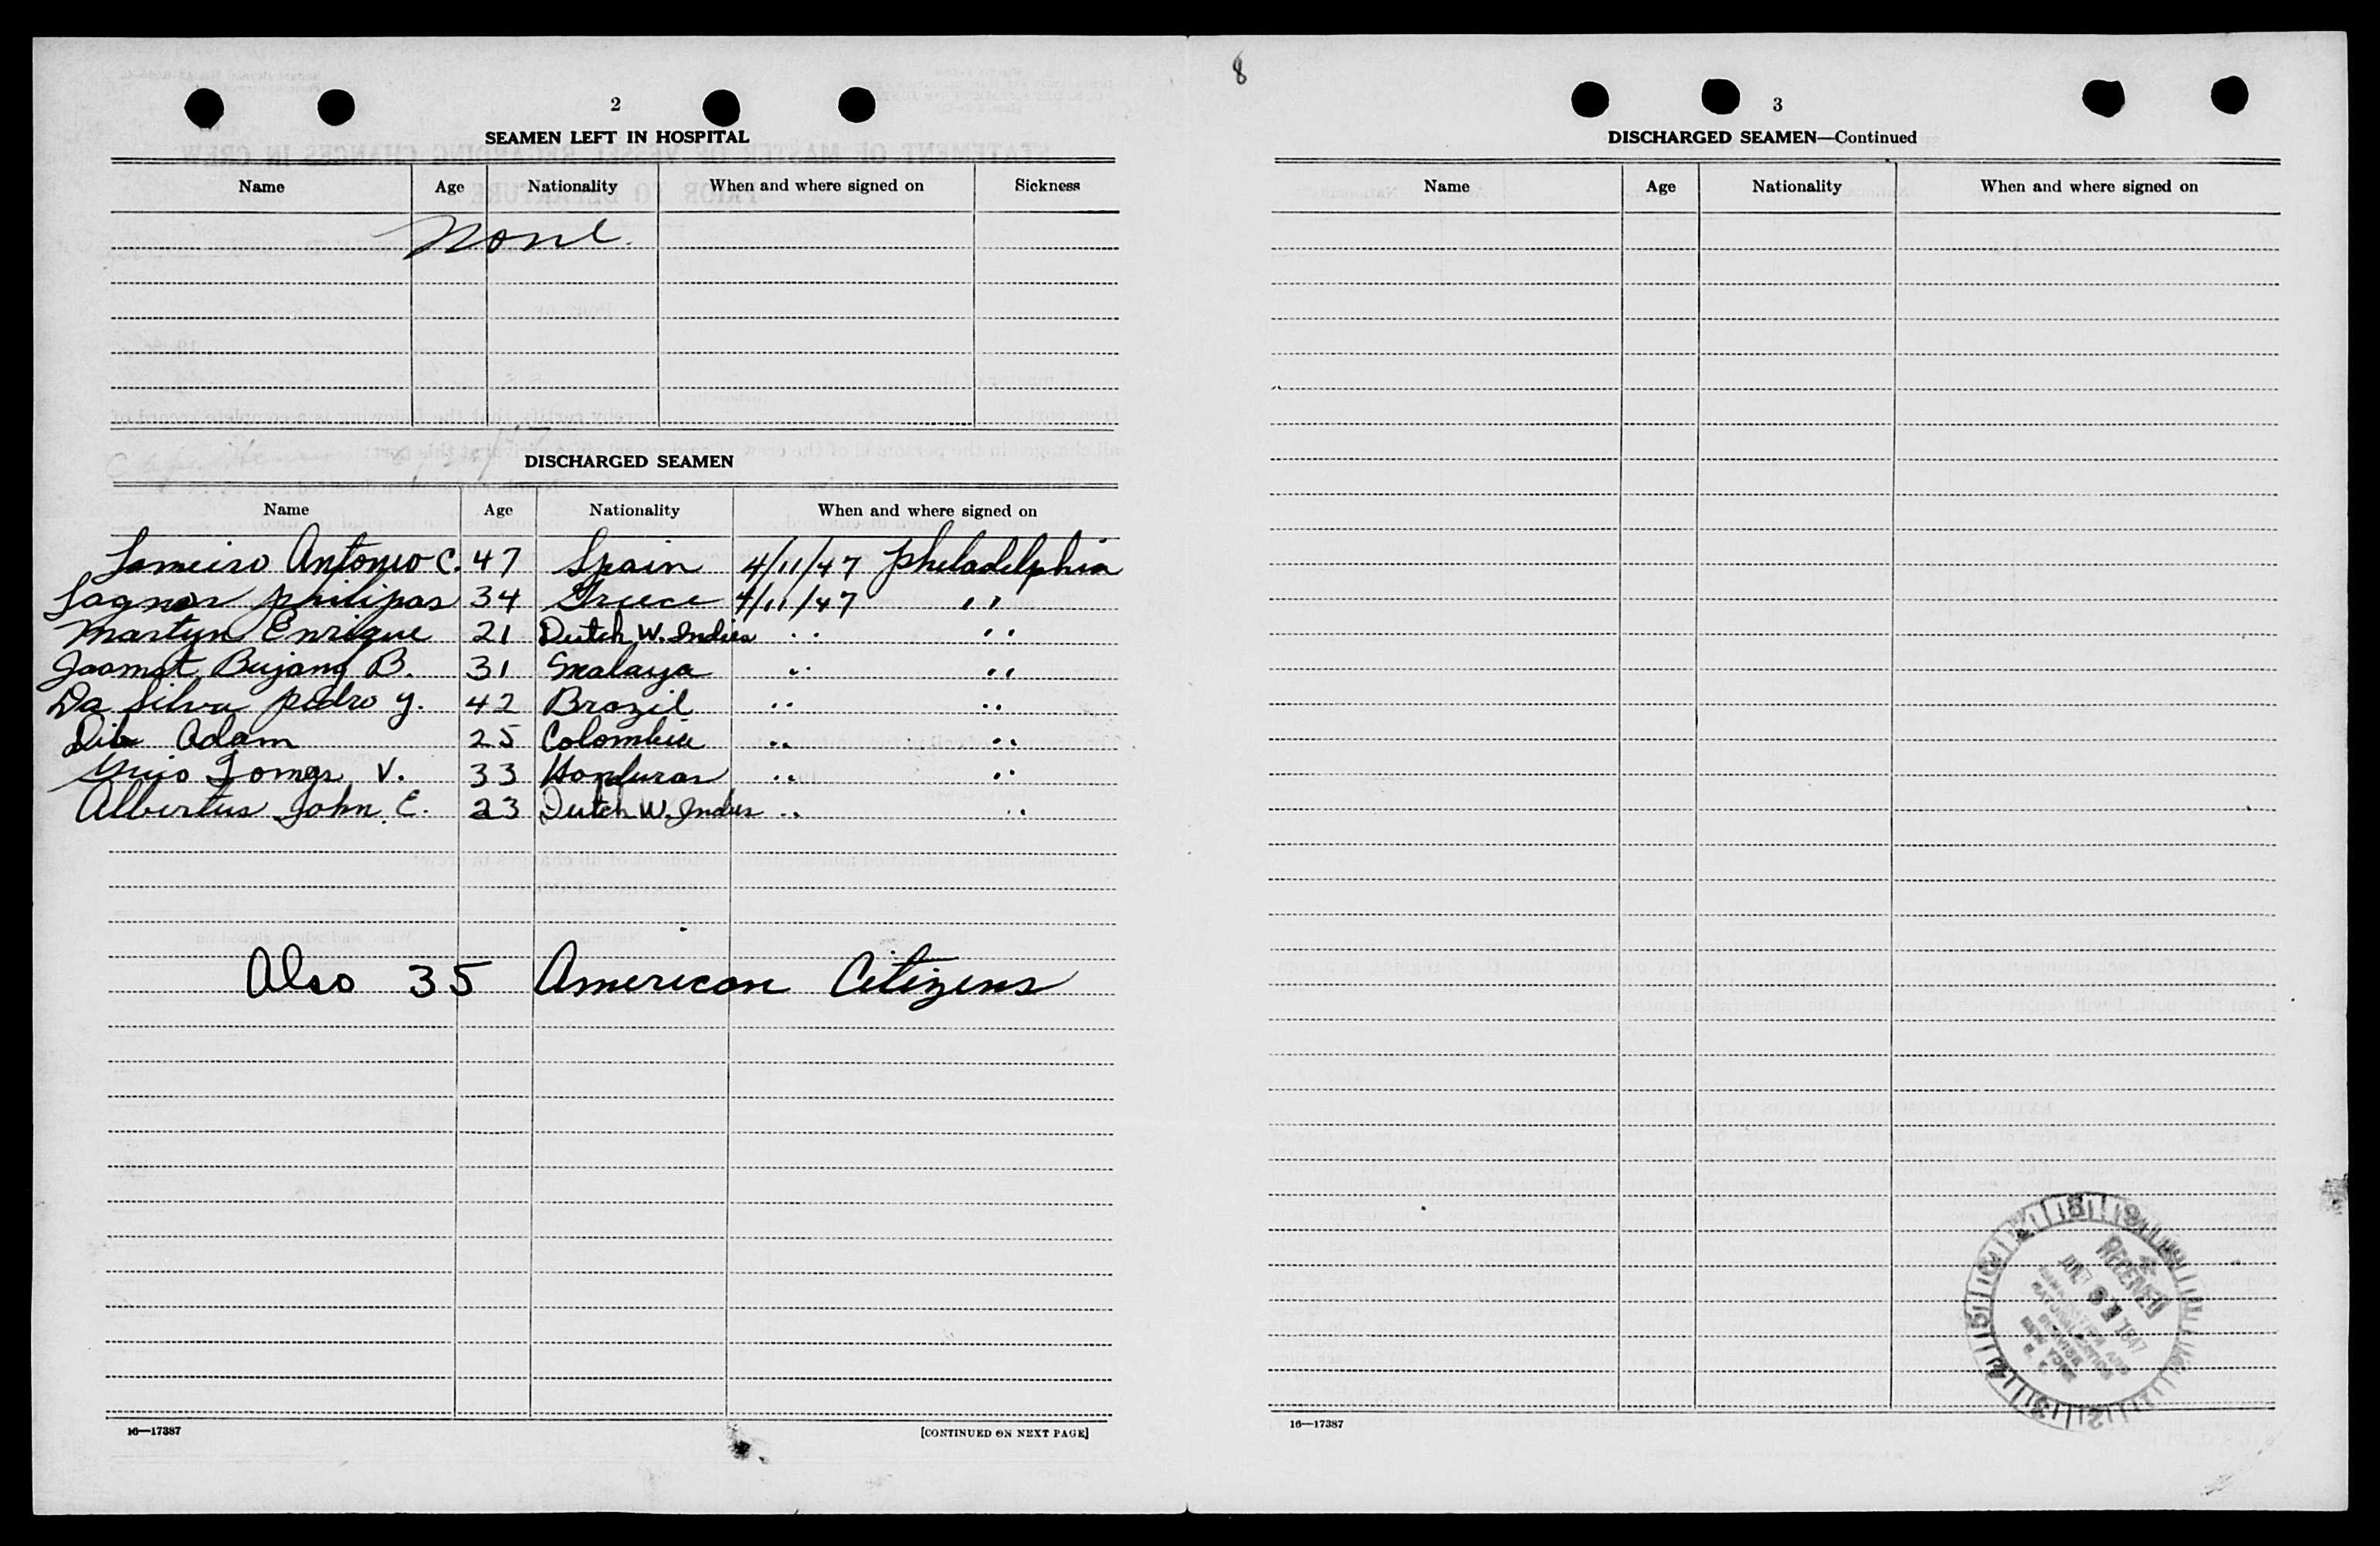 2
SEAMEN LEFT IN HOSPITAL
Name Age Nationality When and where signed on Sickness
None
DISCHARGED SEAMEN
Name Age Nationality When and where signed on
Lameiro Antonio C. 47 Spain 4/11/47 Pheladelphia
philipas 34 Greece 4/11/47 " "
Martyn Enrique 21 Dutch W. Indies " "
Jaamat Bujang B. 31 Malaya " "
Da Silva pedro y. 42 Brazil " "
Dib Adam 25 Colombia " "
V. 33 Honduras " "
Albertus John E. 23 Dutch W. Indies " "
Also 35 American Citizens
16—17387 [CONTINUED ON NEXT PAGE]
8
3
DISCHARGED SEAMEN—Continued
Name Age Nationality When and where signed on
RECEIVED
1947
NEW YORK
16—17387